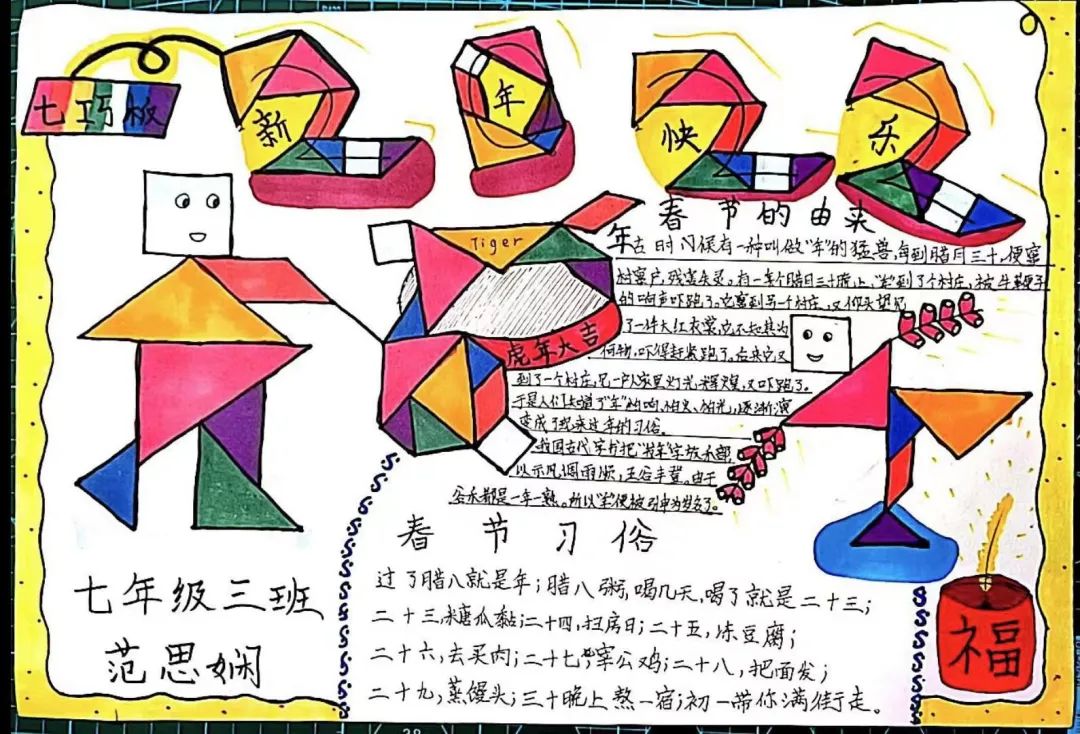 七巧板
新年快乐
Tiger
虎年大吉
春节的由来
年古时候有一种叫做"年"的猛兽,每到腊月三十,便窜
村窜户,残害生灵,有一年个腊月三十晚上,"年"到了个村庄,被牛鞭子
的响声吓跑了,它窜到另一个村庄,又
了一件大红衣裳,它不知其为
何物,吓得赶紧跑了。后来它又
到了一个村庄,见一户人家里灯光辉煌,又吓跑了。
于是人们知道了"年"怕响、怕火、怕光,逐渐演
变成了现在过年的习俗。
我国古代字书把"年"字放禾部,
以示风调雨顺,五谷丰登。由于
谷禾都是一年一熟。所以"年"便被引申为岁名了。
春节习俗
过了腊八就是年;腊八粥,喝几天,喝了就是二十三;
二十三,糖瓜黏;二十四,扫房日;二十五,冻豆腐;
二十六,去买肉;二十七,宰公鸡;二十八,把面发;
二十九,蒸馒头;三十晚上熬一宿;初一带你满街行走。
七年级三班
范思娴
福